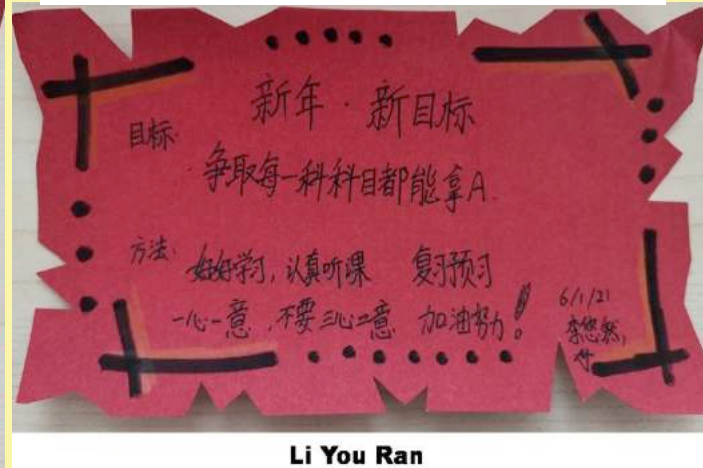 新年·新目标
目标:
争取每一科科目都能拿A.
方法:
好好学习,认真听课 复习预习
一心一意,不要三心二意 加油努力!
6/1/21
李悠然,
Li You Ran